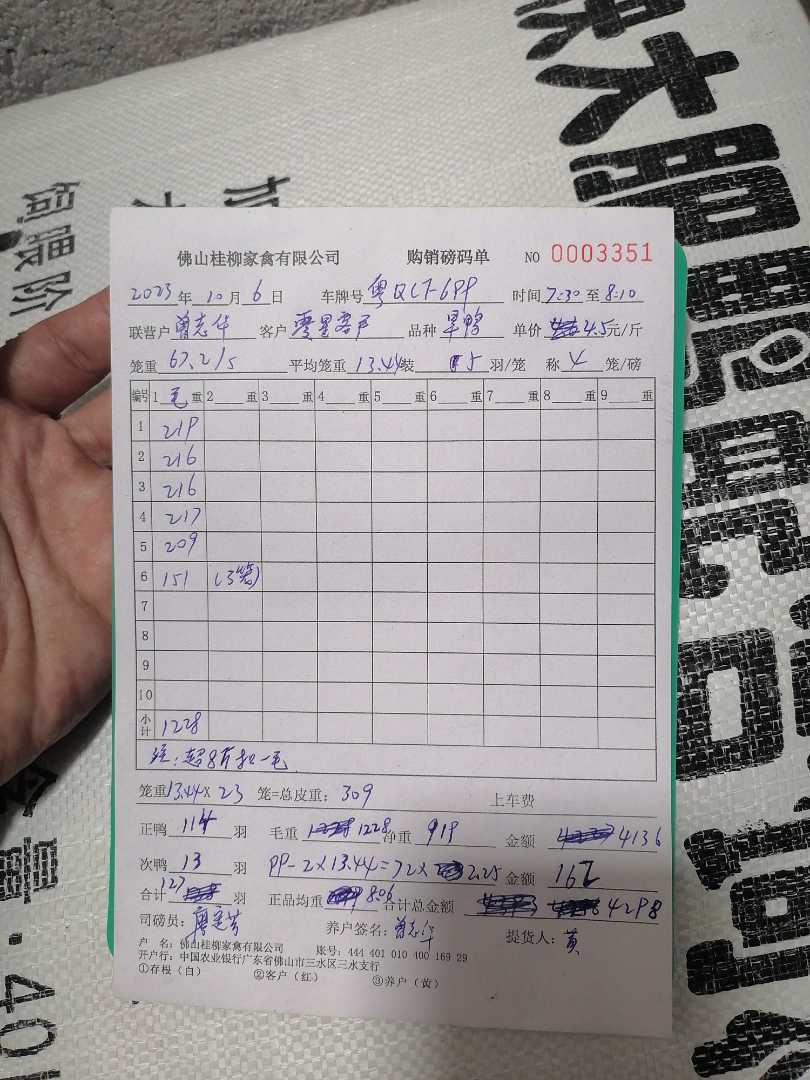 佛山桂柳家禽有限公司 购销磅码单 NO 0003351
2023年10月6日 车牌号 时间7:30至8:10
联营户曾志华 客户零星客户 品种旱鸭 单价4.5元/斤
笼重67.2/5 平均笼重13.44 装5羽/笼 称4笼/磅
编号 1毛重 2重 3重 4重 5重 6重 7重 8重 9重
1 219
2 216
3 216
4 217
5 209
6 151 (3笼)
7
8
9
10
小计 1228
注:超8斤扣一毛
笼重13.44×23笼=总皮重:309 上车费
正鸭114羽 毛重1228 净重919 金额4136
次鸭13羽 99-2×13.44=72×2.25 金额162
合计127羽 正品均重806 合计总金额4298
司磅员: 养户签名:曾志华 提货人:黄
户 名:佛山桂柳家禽有限公司 账号:444 401 010 400 169 29
开户行:中国农业银行广东省佛山市三水区三水支行
①存根(白) ②客户(红) ③养户(黄)
饲喂阶